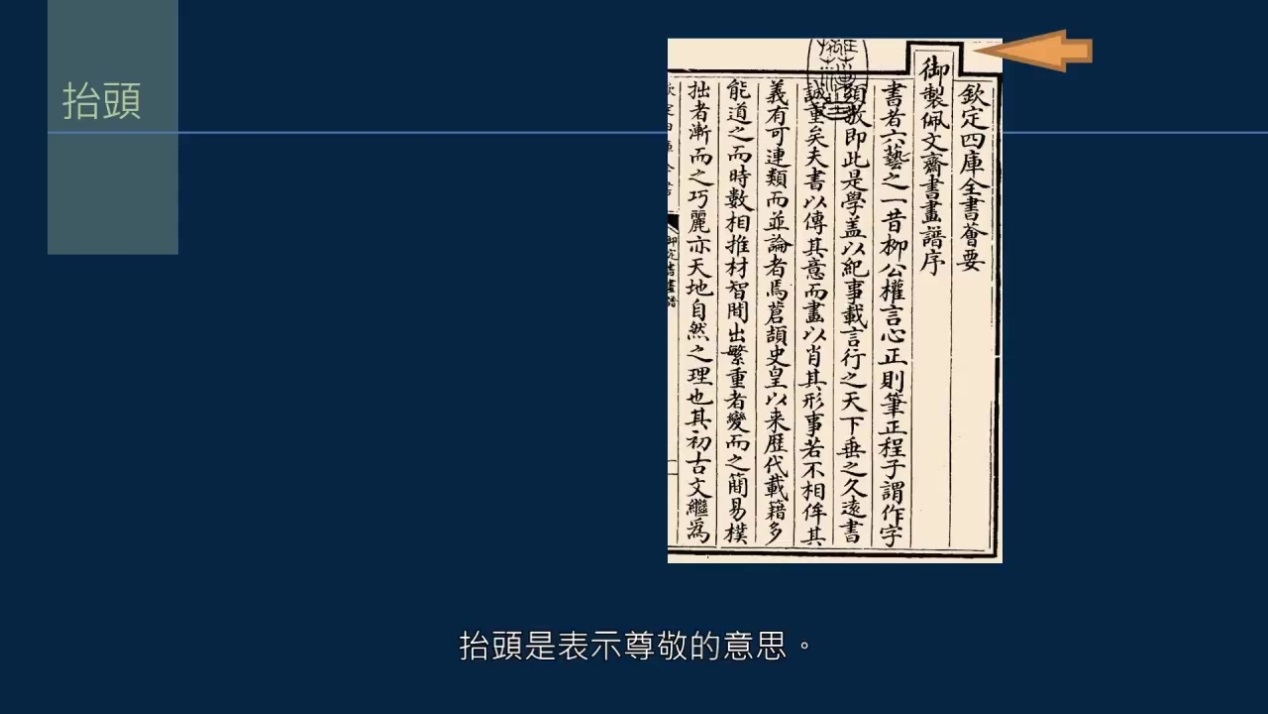 抬頭
欽定四庫全書薈要
御製佩文齋書畫譜序
書者六藝之一昔柳公權言心正則筆正程子謂作字
須敬即此是學盖以紀事載言行之天下垂之久遠書
誠重矣夫書以傳其意而畫以肖其形事若不相侔其
義有可連類而並論者焉蒼頡史皇以来歷代載籍多
能道之而時數相推材智間出繁重者變而之簡易樸
拙者漸而之巧麗亦天地自然之理也其初古文繼為
抬頭是表示尊敬的意思。